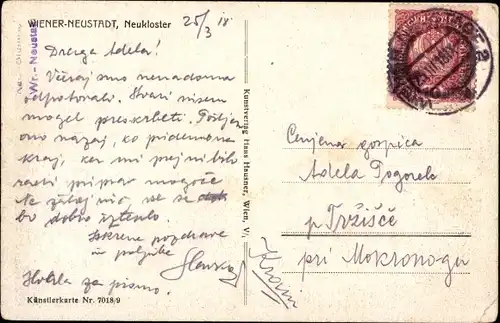 WIENER-NEUSTADT, Neukloster
25/3 18
Wr.-Neustadt
Draga Adela!
Včeraj smo nenadoma
odpotovali. Stvari nisem
mogel preskrbeti. Pošljem
ono nazaj, ko pridemo na
kraj, ker mi prej ni bilo
radi priprav mogoče
Ne zabaj me, vse se
bo dobro izteklo.
Iskrene pozdrave
in poljube
Slavko
Hvala za pismo.
Künstlerkarte Nr. 7018/9
Kunstverlag Hans Hausner, Wien, V/1
Cenjena gospica
Adela Pogorek
p Tržišče
pri Mokronogu
Krain